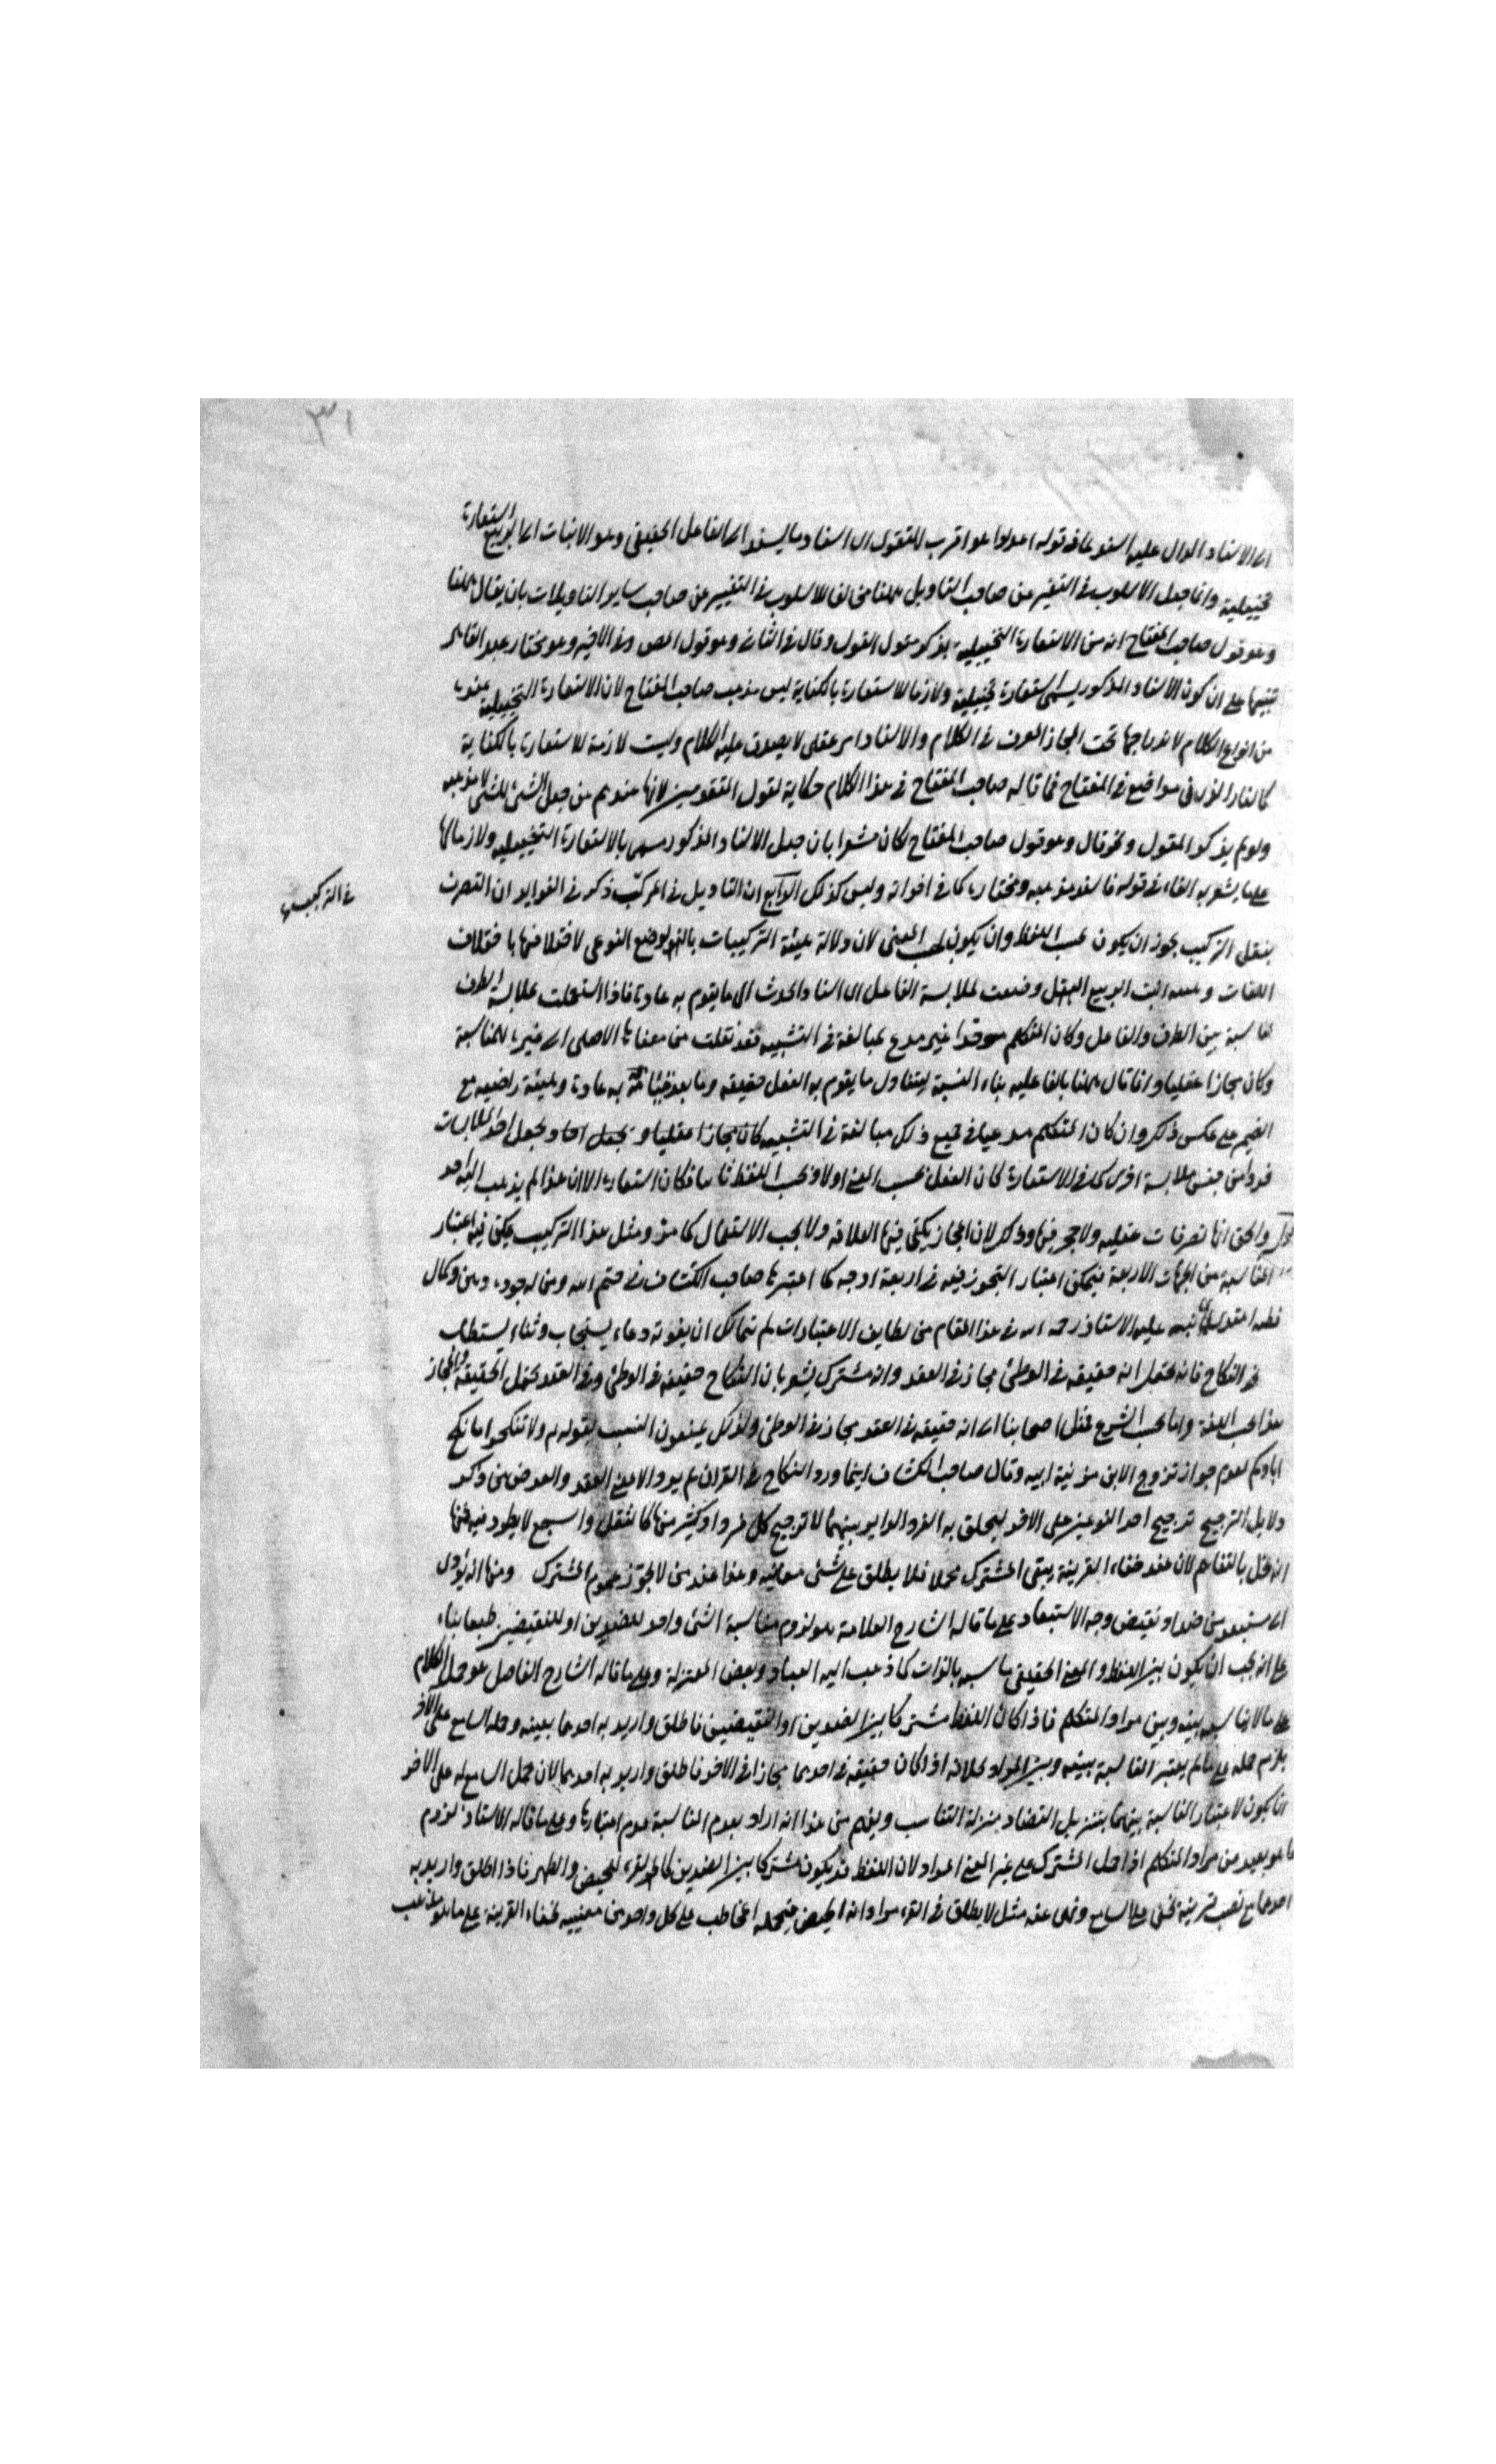 ٣١
اى الاسناد الدال عليه اسند كما فى قوله اعدلوا هو اقرب للتقوى اى اسناد ما يسند الى الفاعل الحقيقى وهو الانبات الى الربيع استعارة
تخييلية وانما جعل الاسلوب فى التعبير عن صاحب التاويل ههنا مخالفا للاسلوب فى التعبير عن صاحب ساير التاويلات بان يقال ههنا
وهو قول صاحب المفتاح انه من الاستعارة التخييلية بذكر مقول القول وقال فى الثانى وهو قول المص وفى الاخير وهو مختار عبد القاهر
تنبيها على ان كون الاسناد المذكور يسمى استعارة تخييلية ولازما للاستعارة بالكناية ليس مذهب صاحب المفتاح لان الاستعارة التخييلية عنده
من انواع الكلام لاندراجها تحت المجاز المعرف فى الكلام والاسناد امر عقلى لا يصدق عليه الكلام وليست لازمة للاستعارة بالكناية
كما اشار اليه فى مواضع فى المفتاح فما قاله صاحب المفتاح فى هذا الكلام حكاية لقول المتقدمين لانها عندهم من جعل الشئ للشئ لا مذهبه
ولو لم يذكر المقول ونحو قال وهو قول صاحب المفتاح لكان مشعرا بان جعل الاسناد المذكور مسمى بالاستعارة التخييلية ولازما لها
على ما يشعر به الفاء فى قوله فاسند مذهبه ومختاره كما فى اخواته وليس كذلك الرابع ان التاويل فى المركب ذكر فى الفوايد ان التصرف
فى التركيب
بنقل التركيب يجوز ان يكون بحسب اللفظ وان يكون بحسب المعنى لان دلالة هيئة التركيبات بالوضع النوعى لاختلافها باختلاف
اللغات وهيئة انبت الربيع البقل وضعت لملابسة الفاعل اى اسناد الحدث الى ما يقوم به عادة فاذا استعملت لملابسة الظرف
لمناسبة بين الظرف والفاعل وكان المتكلم موحدا غير مدع لمبالغة فى التشبيه فقد نقلت من معناها الاصلى الى غيره للمناسبة
وكان مجازا عقليا وانما قال ههنا بالفاعلية بناء النسبة ليتناول ما يقوم به الفعل حقيقة وما يعد به عادة وهيئة راضية مع
الضمير على عكس ذلك وان كان المتكلم مدعيا فى جميع ذلك مبالغة فى التشبيه كان مجازا عقليا ويجعل احد الملابسات
فردا من جنس ملابسة اخرى كما فى الاستعارة كان الفعل بحسب المعنى اولا وبحسب اللفظ ثانيا فكان استعارة الا ان هذا لم يذهب اليه احد
والحق انها تصرفات عقلية ولا حجر فيها وذلك لان المجاز يكفى فيها العلاقة ولا يجب الاستعمال كما مر ومثل هذا التركيب يمكن فيه اعتبار
المناسبة من الجهات الاربعة فيمكن اعتبار التجوز فيه فى اربعة اوجه كما اعتبرها صاحب الكشاف فى ختم الله ومن له جودة ذهن وكمال
نبه عليه الاستاذ رحمه الله فى هذا المقام من لطايف الاعتبارات لم يتمالك ان يفوته دعاء يستجاب وثناء يستطاب
فى النكاح فانه يحتمل انه حقيقة فى الوطئ مجاز فى العقد وانه مشترك يشعر بان النكاح حقيقة فى الوطئ وفى العقد يحتمل الحقيقة والمجاز
هذا بحسب اللغة واما بحسب الشرع فنقل اصحابنا اى انه حقيقة فى العقد مجاز فى الوطئ ولذلك يمنعون التمسك بقوله ولا تنكحوا ما نكح
اباؤكم لعدم جواز تزوج الابن مزنية ابيه وقال صاحب الكشاف اينما ورد النكاح فى القران لم يرد الا معنى العقد والغرض من ذكر
دلايل الترجيح ترجيح احد النوعين على الاخر ليحلق به الفرد الداير بينهما لا ترجيح كل فرد او كثير منها كالنقل والسجع لا يطرد فيه فمنها
انه يخل بالتفاهم لان عند خفاء القرينة يبقى المشترك مجملا فلا يطلق على شئ معانيه وهذا عند من لا يجوز عموم المشترك ومنها انه يؤدى
الى مستبعد من ضد او نقيض وجه الاستبعاد على ما قاله الشارح العلامة هو لزوم مناسبة الشئ واحد للضدين او للنقيضين طبعا بناء
على انه يجب ان يكون بين اللفظ والمعنى الحقيقى مناسبة بالذات كما ذهب اليه العباد وبعض المعتزلة وعلى ما قاله الشارح الفاضل هو حمل الكلام
على ما لا مناسبة بينه وبين مراد المتكلم فاذا كان اللفظ مشتركا بين الضدين او النقيضين فاطلق واريد به احدهما بعينه وحمله السامع على الاخر
يلزم حمله على ما لم يعتبر المناسبة بينه وبين المراد بخلافه اذا كان حقيقة فى احدهما مجازا فى الاخر فاطلق واريد به احدهما لان حمل السامع له على الاخر
انما يكون لاعتبار المناسبة بينهما بتنزيل التضاد منزلة التناسب ويفهم من هذا انه اراد بعدم المناسبة عدم اعتبارها وعلى ما قاله الاستاذ لزوم
ما هو بعيد من مراد المتكلم اذا حمل المشترك على غير المعنى المراد لان اللفظ قد يكون مشتركا بين الضدين كالقرء للحيض والطهر فاذا اطلق واريد به
احدهما مع نصب قرينة تخفى على السامع ونهى عنه مثل لا يطلق فى القرء مرادا به الحيض فيحمله المخاطب على كل واحد من معنييه لخفاء القرينة على ما هو مذهب